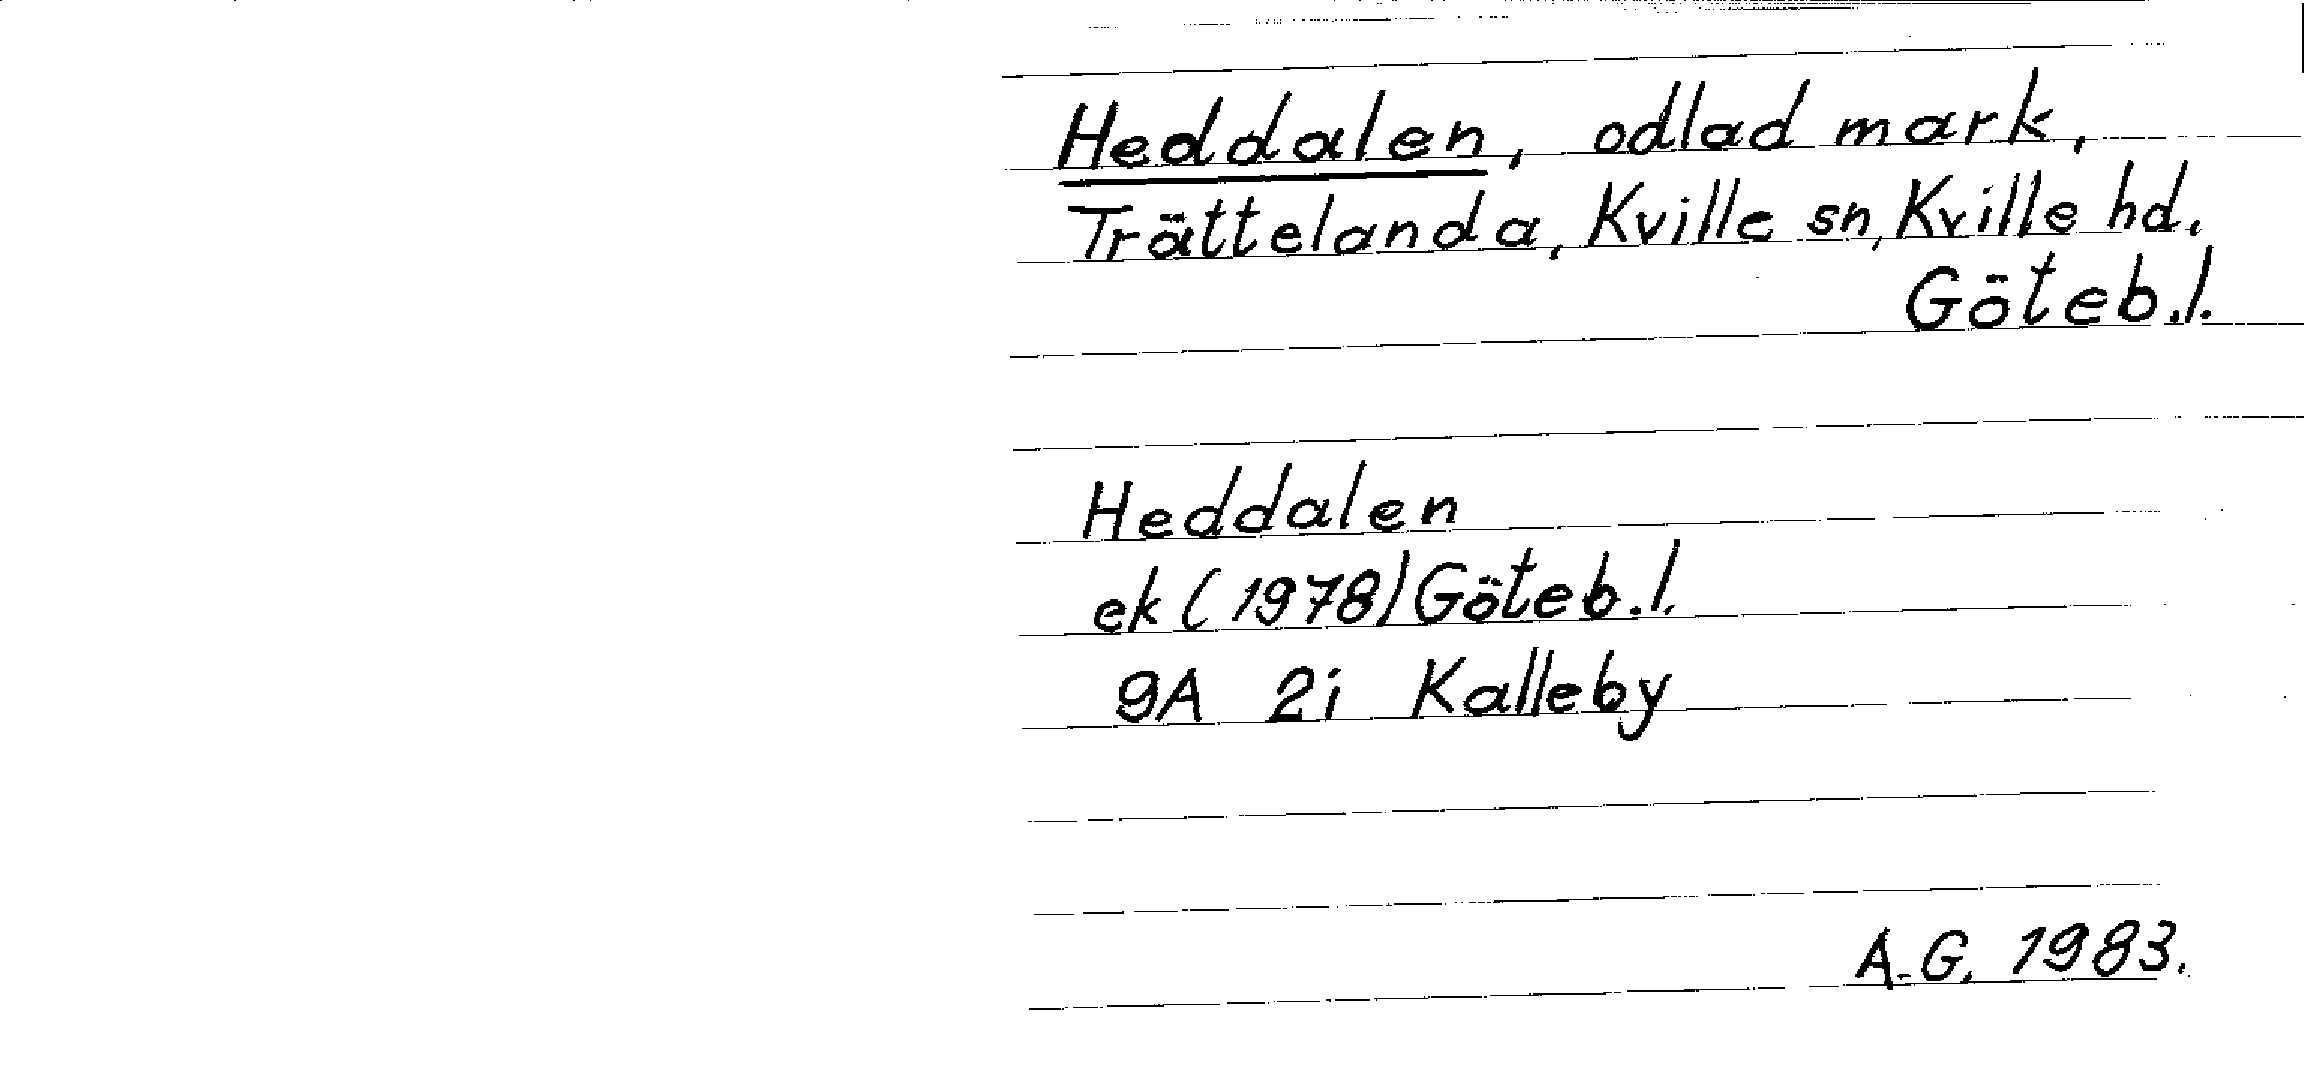 Heddalen, odlad mark,
Trättelanda, Kville sn, Kville hd.
Göteb.l.
Heddalen
ek (1978) Göteb.l.
9A 2i Kalleby
A.G. 1983.